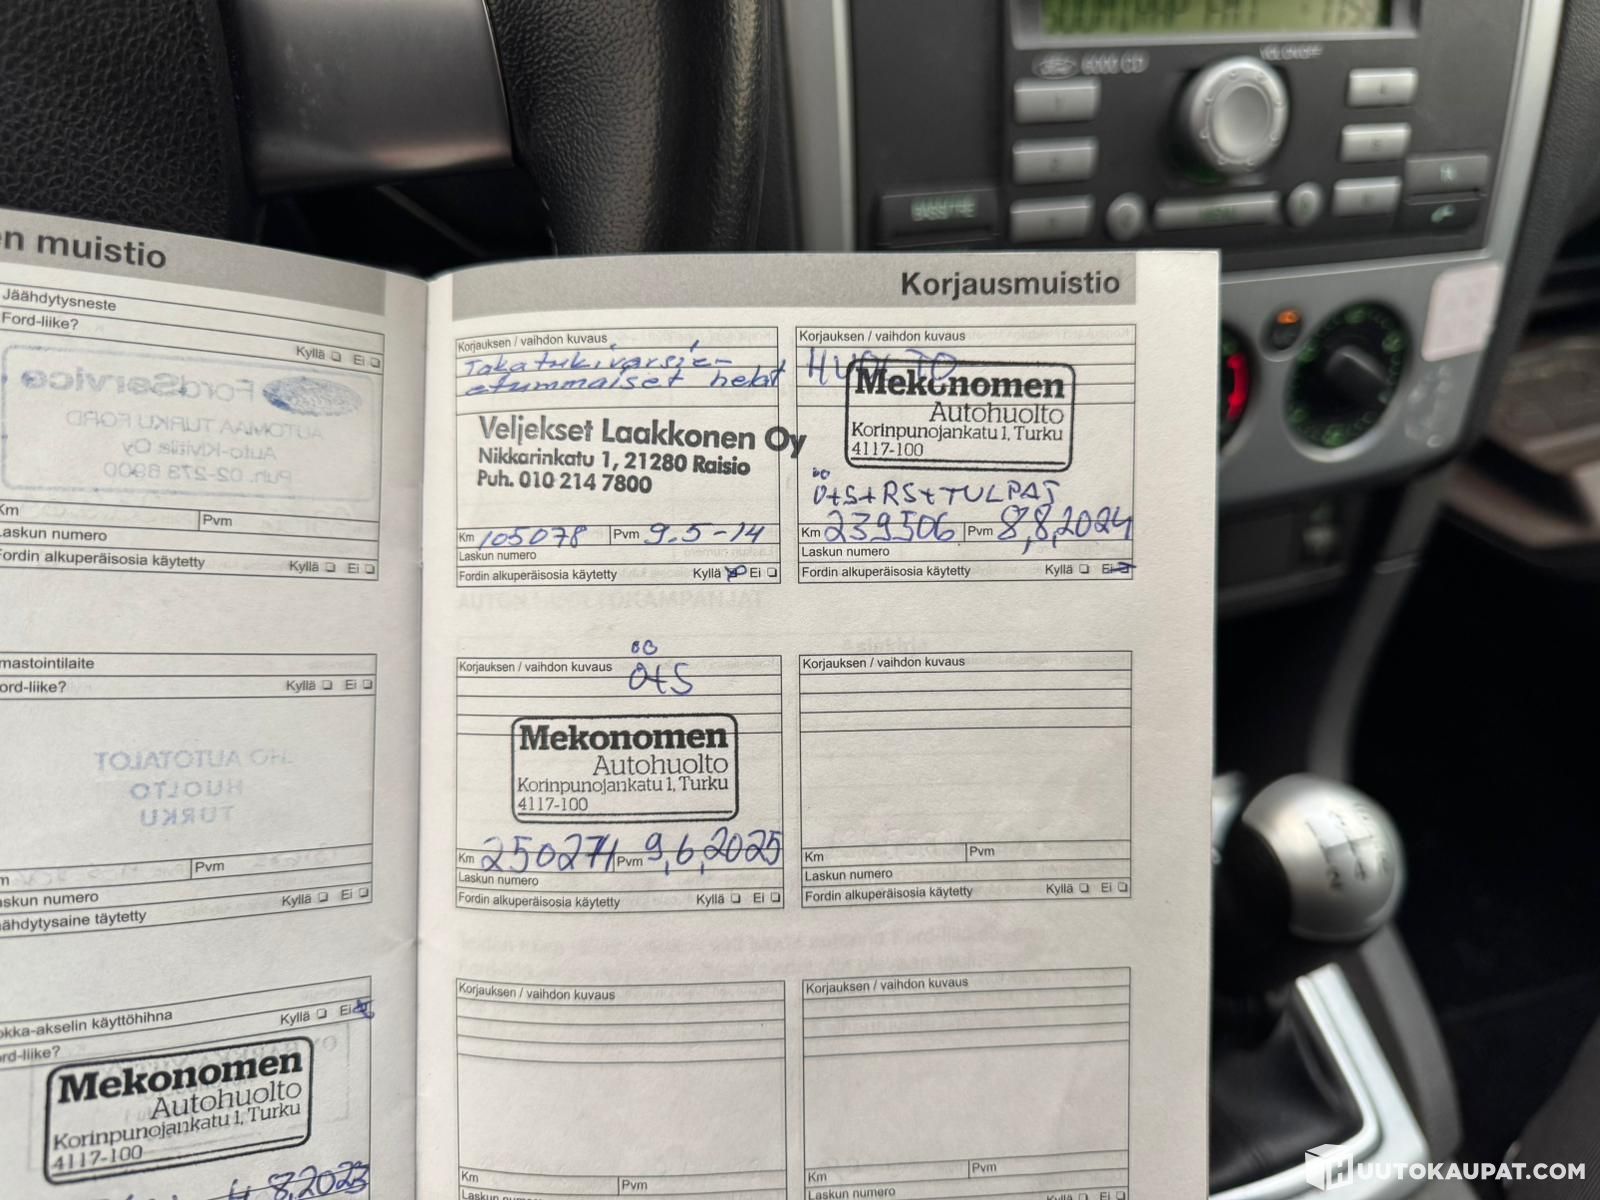 en muistio
Jäähdytysneste
Ford-liike?
Kyllä Ei
FordService
AUTOMAA TURKU FORD
Auto-Kivitila Oy
Puh. 02-273 6900
Km Pvm
Laskun numero
Fordin alkuperäisosia käytetty Kyllä Ei
mastointilaite
ord-liike? Kyllä Ei
AUTOTALOT
HUOLTO
TURKU
m Pvm
askun numero
äähdytysaine täytetty Kyllä Ei
okka-akselin käyttöhihna Kyllä Ei
rd-liike?
Mekonomen
Autohuolto
Korinpunojankatu 1, Turku
4117-100
8,2023
Korjausmuistio
Korjauksen / vaihdon kuvaus
Takatukivarsien
etummaiset helat
Veljekset Laakkonen Oy
Nikkarinkatu 1, 21280 Raisio
Puh. 010 214 7800
Km 105078 Pvm 9.5-14
Laskun numero
Fordin alkuperäisosia käytetty Kyllä Ei
Korjauksen / vaihdon kuvaus
HUOLTO
Mekonomen
Autohuolto
Korinpunojankatu 1, Turku
4117-100
Ö+S+RS+TULPAT
Km 239506 Pvm 8,8,2024
Laskun numero
Fordin alkuperäisosia käytetty Kyllä Ei
Korjauksen / vaihdon kuvaus
Ö+S
Mekonomen
Autohuolto
Korinpunojankatu 1, Turku
4117-100
Km 250271 Pvm 9,6,2025
Laskun numero
Fordin alkuperäisosia käytetty Kyllä Ei
Korjauksen / vaihdon kuvaus
Km Pvm
Laskun numero
Fordin alkuperäisosia käytetty Kyllä Ei
Korjauksen / vaihdon kuvaus
Km Pvm
Laskun numero
Korjauksen / vaihdon kuvaus
Km Pvm
Laskun numero
Kyllä Ei
6000 CD
HUUTOKAUPAT.COM